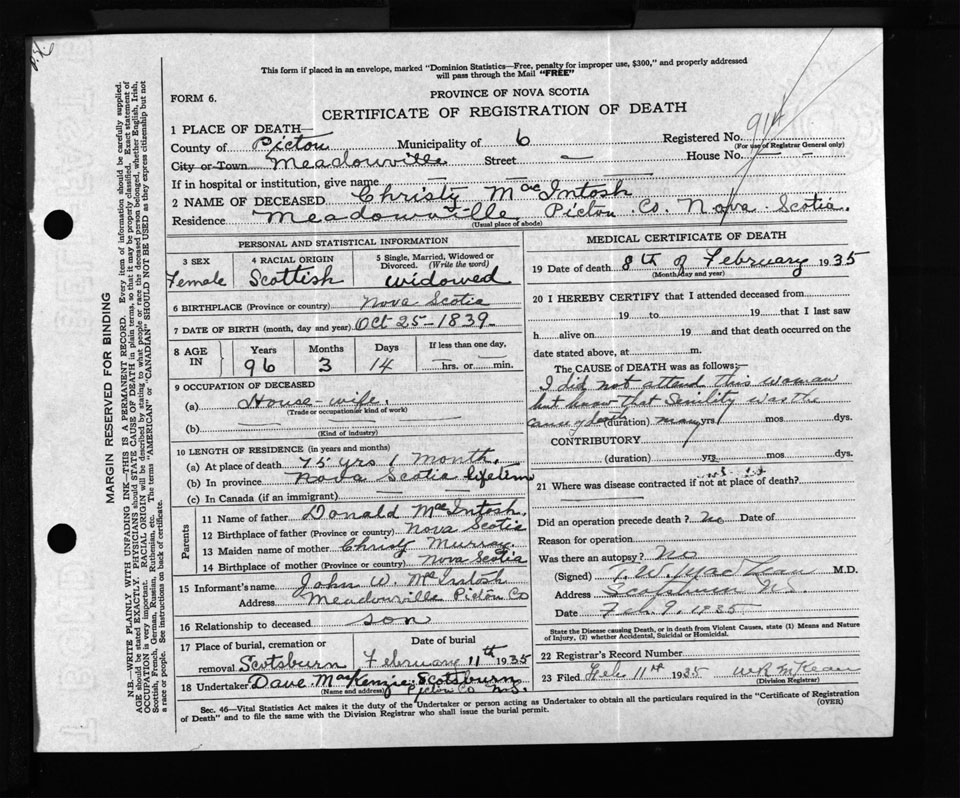 This form if placed in an envelope, marked "Dominion Statistics—Free, penalty for improper use, $300," and properly addressed
will pass through the Mail "FREE"
PROVINCE OF NOVA SCOTIA
FORM 6.
CERTIFICATE OF REGISTRATION OF DEATH
1 PLACE OF DEATH—
County of Pictou Municipality of 6 Registered No.
(For use of Registrar General only)
City or Town Meadowville Street — House No. —
If in hospital or institution, give name — — —
2 NAME OF DECEASED Christy MacIntosh
Residence Meadowville Pictou Co. Nova Scotia.
(Usual place of abode)
PERSONAL AND STATISTICAL INFORMATION
3 SEX 4 RACIAL ORIGIN 5 Single, Married, Widowed or Divorced. (Write the word)
Female Scottish widowed
6 BIRTHPLACE (Province or country) Nova Scotia
7 DATE OF BIRTH (month, day and year) Oct 25-1839-
8 AGE IN Years Months Days If less than one day,
96 3 14 hrs. or min.
9 OCCUPATION OF DECEASED
(a) House-wife,
(Trade or occupation or kind of work)
(b)
(Kind of industry)
10 LENGTH OF RESIDENCE (in years and months)
(a) At place of death 75 yrs 1 month,
(b) In province Nova Scotia lifetime
(c) In Canada (if an immigrant)
Parents
11 Name of father Donald McIntosh,
12 Birthplace of father (Province or country) Nova Scotia
13 Maiden name of mother Christy Murray
14 Birthplace of mother (Province or country) Nova Scotia
15 Informant's name John W. McIntosh
Address Meadowville Pictou Co
16 Relationship to deceased son
17 Place of burial, cremation or removal Scotsburn Date of burial February 11th 1935
18 Undertaker Dave MacKenzie: Scotsburn
(Name and address) Pictou Co N.S.
MEDICAL CERTIFICATE OF DEATH
19 Date of death 8th of February 1935
(Month, day and year)
20 I HEREBY CERTIFY that I attended deceased from
19 to 19 that I last saw
h alive on 19 and that death occurred on the
date stated above, at m.
The CAUSE of DEATH was as follows:—
I did not attend this woman
but know that Senility was the
cause of death (duration) many yrs mos dys.
CONTRIBUTORY
(duration) yrs. mos dys.
21 Where was disease contracted if not at place of death?
Did an operation precede death? No Date of
Reason for operation
Was there an autopsy? No
(Signed) T. W. MacKean M.D.
Address Scotsburn N.S.
Date Feb 9, 1935
State the Disease causing Death, or in death from Violent Causes, state (1) Means and Nature
of Injury, (2) whether Accidental, Suicidal or Homicidal.
22 Registrar's Record Number
23 Filed Feb 11th 1935 W R McKean
(Division Registrar)
Sec. 46—Vital Statistics Act makes it the duty of the Undertaker or person acting as Undertaker to obtain all the particulars required in the "Certificate of Registration
of Death" and to file the same with the Division Registrar who shall issue the burial permit. (OVER)
MARGIN RESERVED FOR BINDING
N.B.—WRITE PLAINLY WITH UNFADING INK—THIS IS A PERMANENT RECORD. Every item of information should be carefully supplied.
AGE should be stated EXACTLY. PHYSICIANS should STATE CAUSE OF DEATH in plain terms, so that it may be properly classified. Exact statement of
OCCUPATION is very important. RACIAL ORIGIN will be described by stating to what people or race the deceased person belonged, whether English, Irish,
Scottish, French, German, Russian, Ruthenian, etc. The terms "AMERICAN" or "CANADIAN" SHOULD NOT BE USED as they express citizenship but not
a race or people. See instructions on back of certificate.